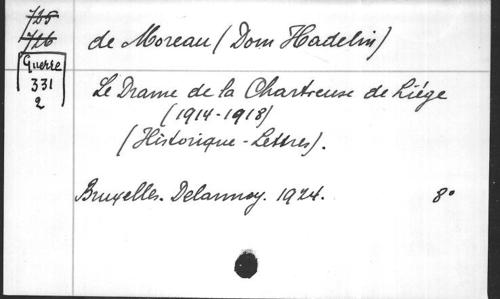 728
726
Guerre
331
2
de Moreau (Dom Hadelin)
Le Drame de la Chartreuse de Liége
(1914-1918)
(Historique - Lettres).
Bruxelles. Delannoy. 1924. 8°